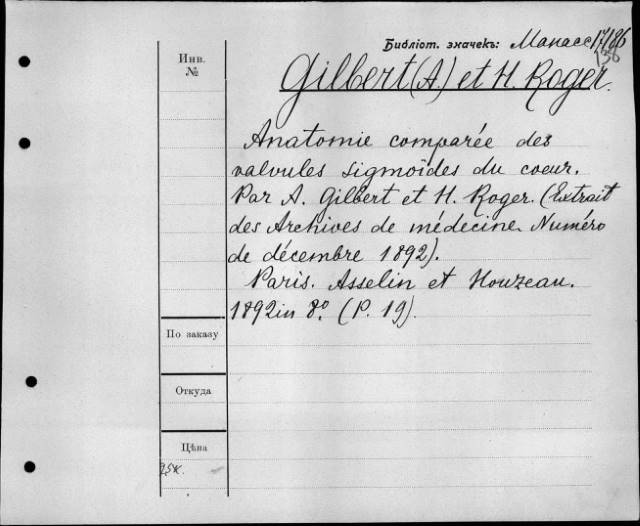 Библіот. значекъ: Манасс 17186
138
Инв.
№
Gilbert (A.) et H. Roger.
Anatomie comparée des
valvules sigmoïdes du coeur.
Par A. Gilbert et H. Roger. (Extrait
des Archives de médecine Numéro
de décembre 1892).
Paris. Asselin et Houzeau.
1892 in 8º. (P. 19).
По заказу
Откуда
Цѣна
25к.